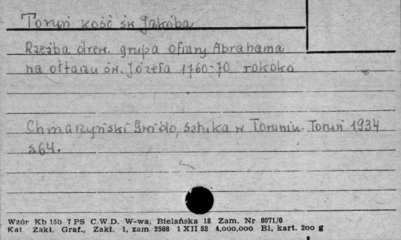 Toruń kość św Jakóba
Rzeźba drew. grupa ofiary Abrahama
na ołtarzu św. Józefa 1760-70 rokoko
Chmarzyński Gwido, Sztuka w Toruniu. Toruń 1934
s 64.
Wzór Kb 15b 7 PS C.W.D. W-wa, Bielańska 18 Zam. Nr 8071/6
Kat Zakł. Graf., Zakł. 1, zam 2588 1 XII 52 4,000,000 B1, kart. 200 g